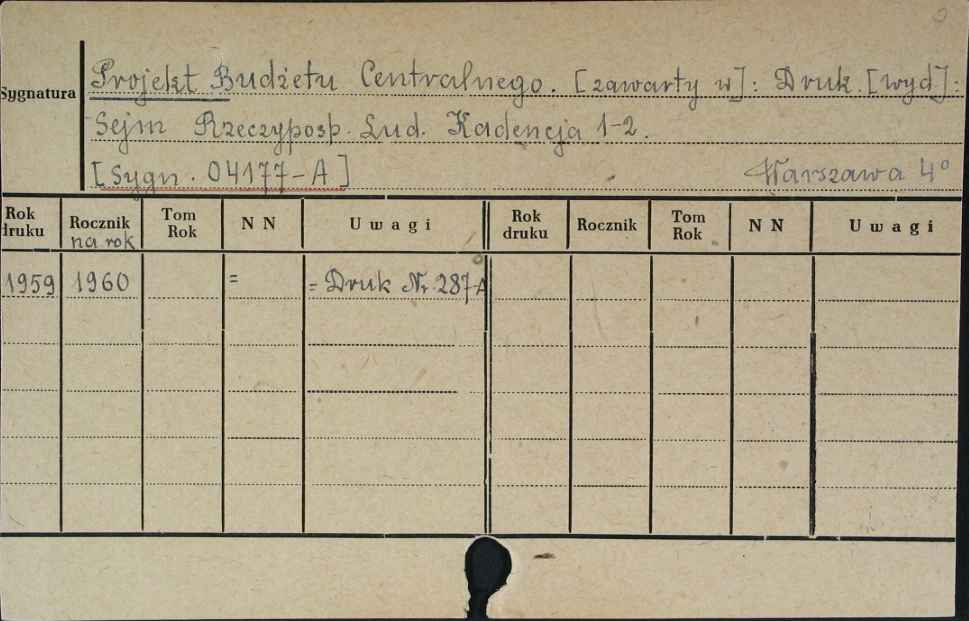 Sygnatura
Projekt Budżetu Centralnego. [zawarty w]: Druk. [wyd]:
Sejm Rzeczyposp. Lud. Kadencja 1-2.
[Sygn. 04177-A] Warszawa 4°
Rok druku Rocznik na rok Tom Rok N N Uwagi Rok druku Rocznik Tom Rok N N Uwagi
1959 1960 = = Druk Nr. 287-A